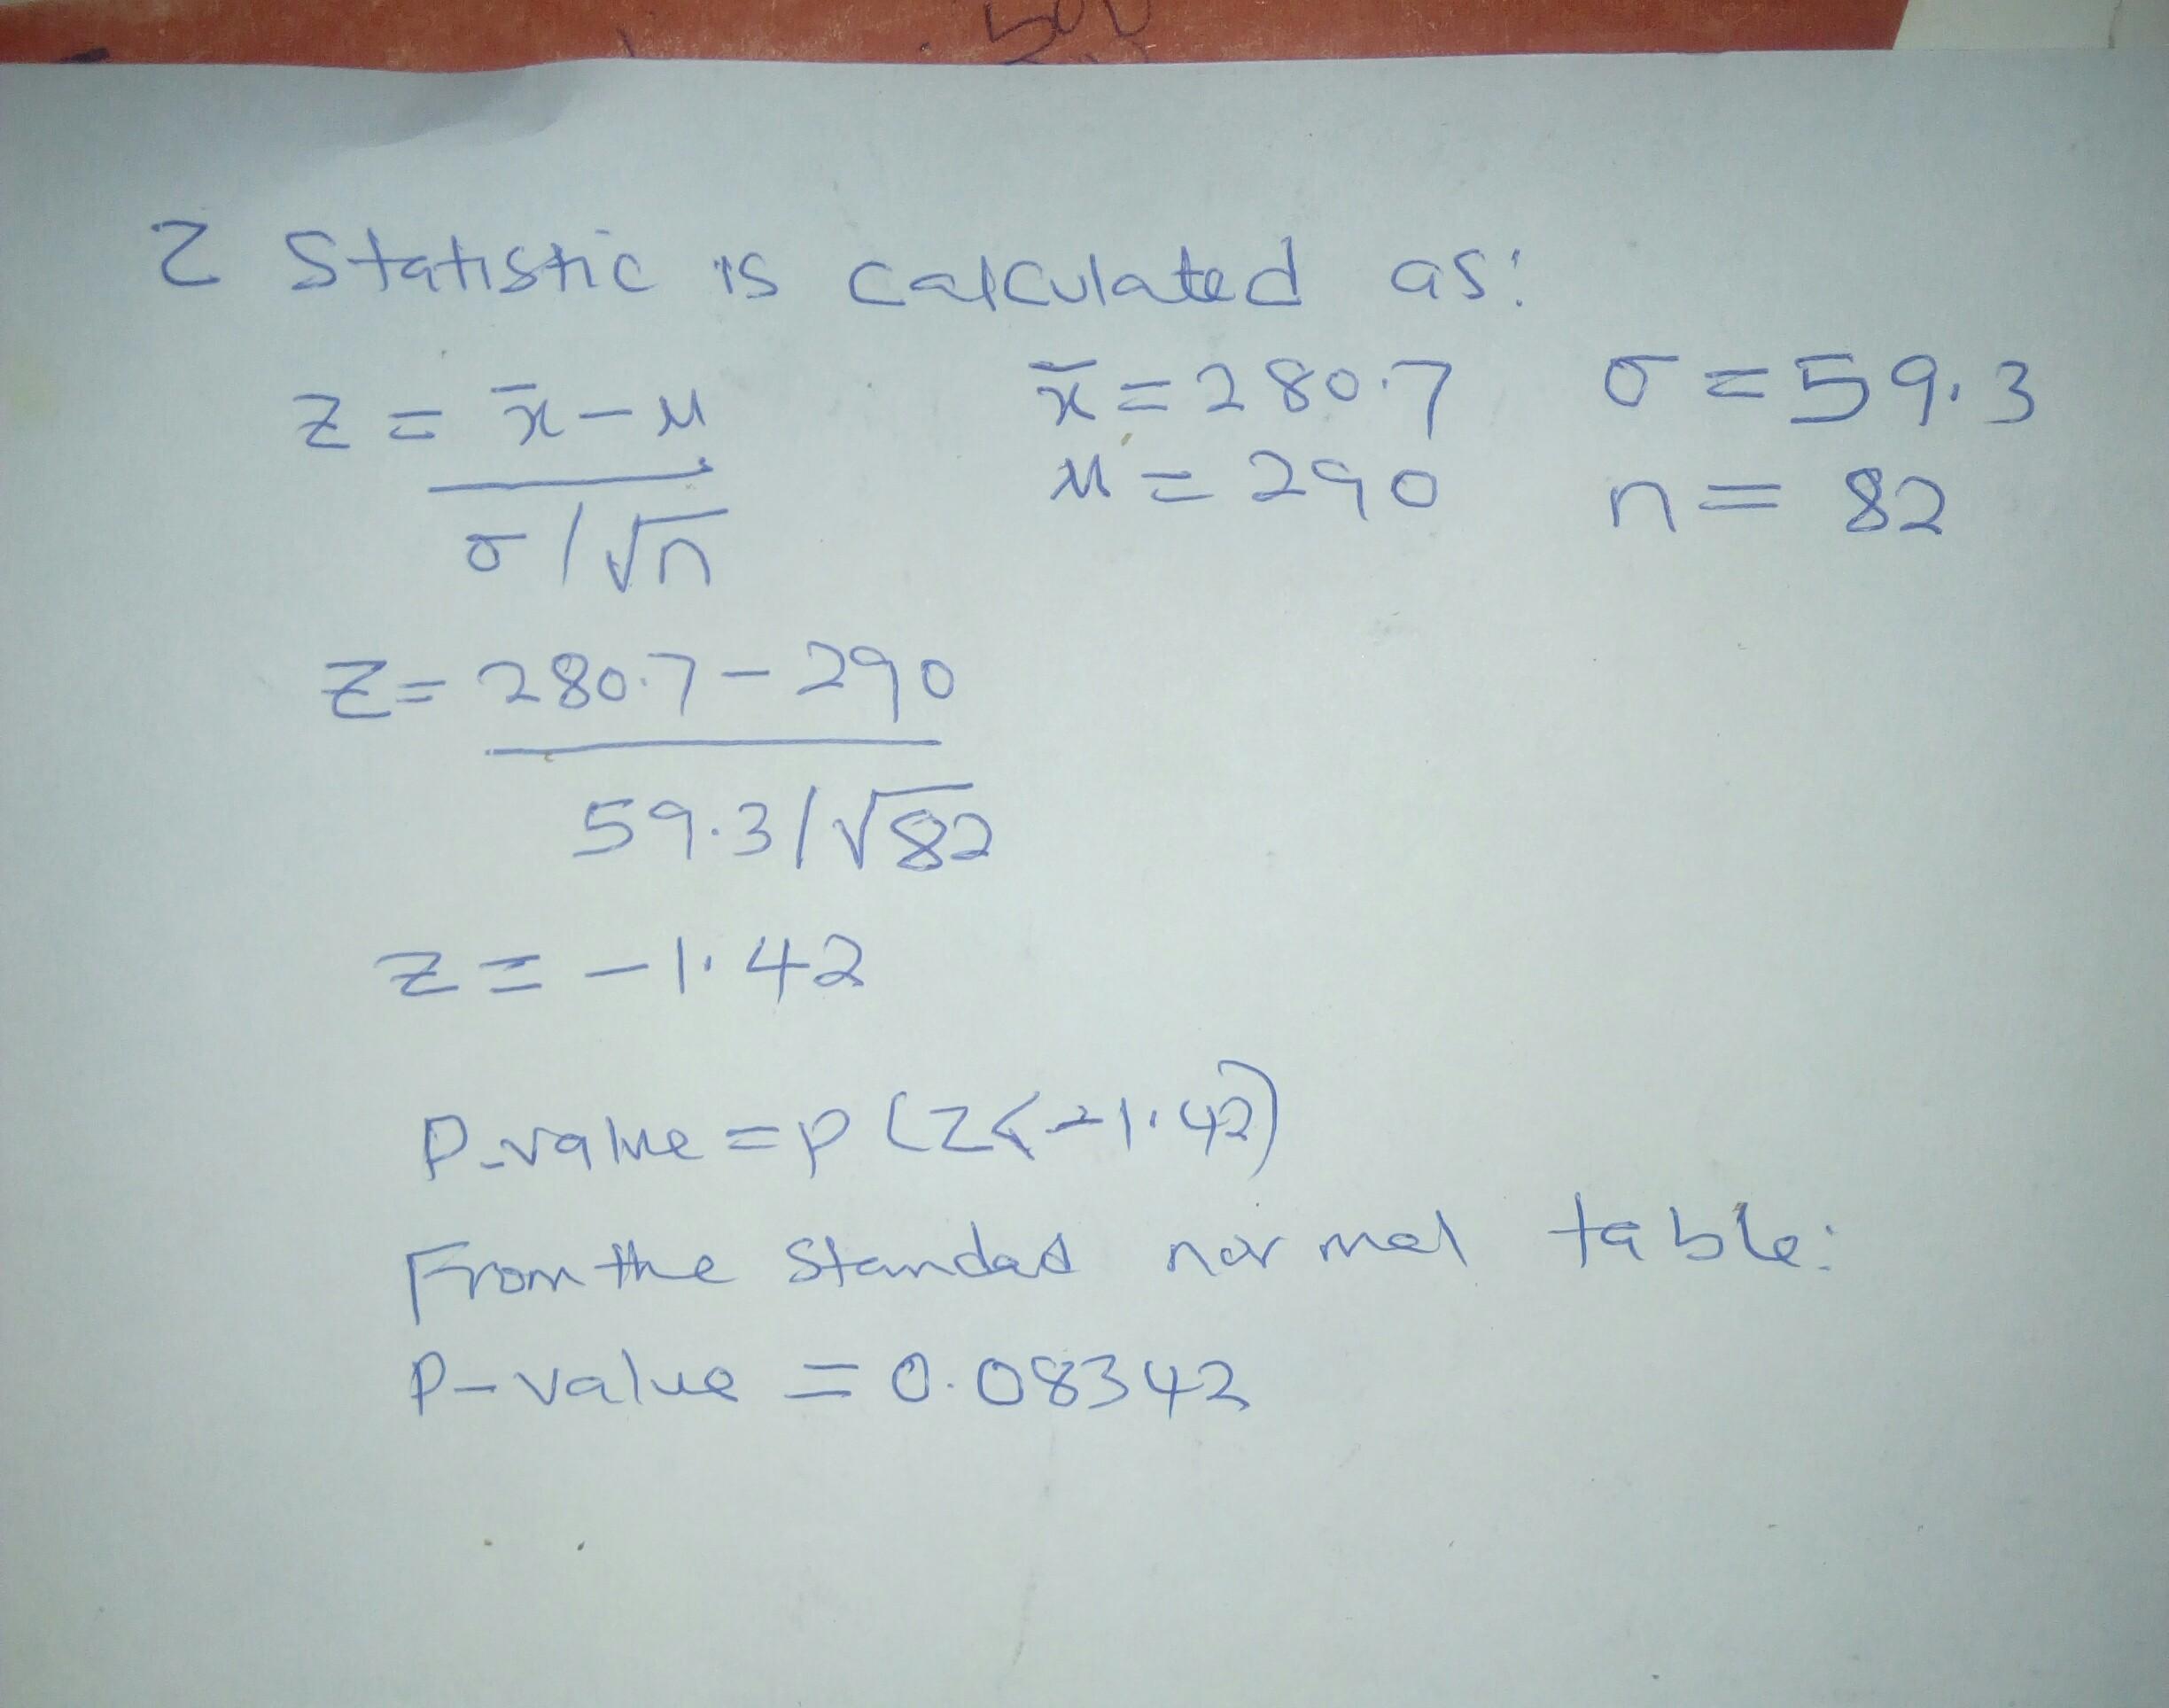 Z Statistic is calculated as:
z = x̄ - μ x̄ = 280.7 σ = 59.3
σ/√n μ = 290 n = 82
Z = 280.7 - 290
59.3/√82
z = -1.42
P-value = P(Z < -1.42)
From the Standad normal table:
P-value = 0.08342